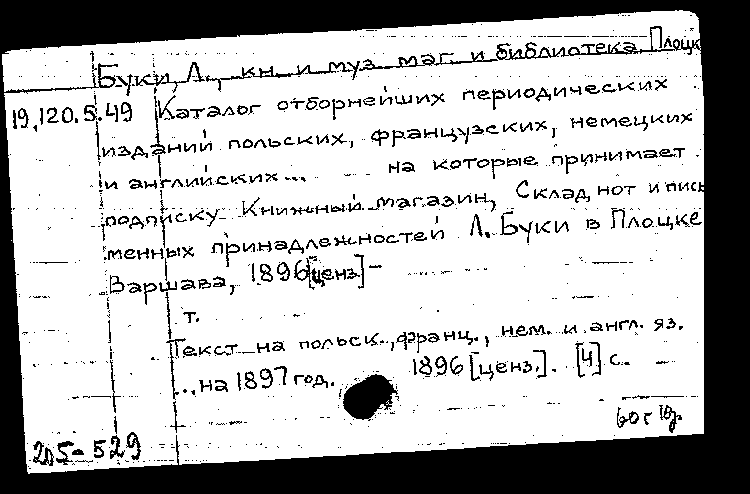 Буки, Л., кн. и муз. маг. и библиотека, Плоцк
19,120.5.49 Каталог отборнейших периодических
изданий польских, французских, немецких
и английских... на которые принимает
подписку Книжный магазин, Склад нот и пись
менных принадлежностей Л. Буки в Плоцке
Варшава, 1896 [ценз.] -
т.
Текст на польск., франц., нем. и англ. яз.
...на 1897 год. 1896 [ценз.]. [4] с. -
205-529